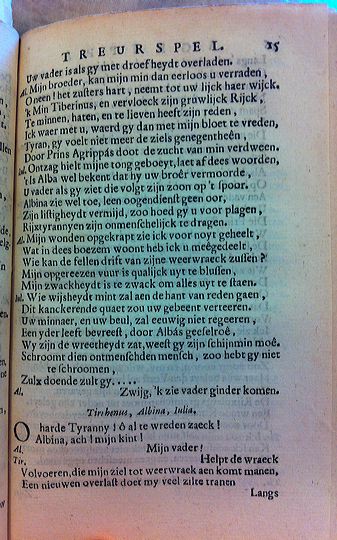 TREURSPEL. 25
Uw vader is als gy met droefheydt overladen.
Al. Mijn broeder, kan mijn min dan eerloos u verraden,
O neen! het zusters hart, neemt tot uw lijck haer wijck.
'k Min Tiberinus, en vervloeck zijn grúwlijck Rijck,
Te minnen, haten, en te lieven heeft zijn reden,
Ick waer met u, waerd gy dan met mijn bloet te vreden,
Tyrao, gy voelt niet meer de ziels genegentheên,
Door Prins Agrippás doot de zucht van min verdween.
Iul. Ontzag hielt mijne tong geboeyt, laet af dees woorden,
't Is Alba wel bekent dat hy uw broêr vermoorde,
U vader als gy ziet die volgt zijn zoon op 't spoor.
Albina zie wel toe, leen oogendienst geen oor,
Zijn listigheydt vermijd, zoo hoed gy voor plagen,
Rijxtyrannyen zijn onmenschelijck te dragen.
Al. Mijn wonden opgekrapt zie ick voor noyt geheelt,
Wat in dees boezem woont heb ick u meêgedeelt,
Wie kan de fellen drift van zijne weerwraeck zussen?
Mijn opgereezen vuur is qualijck uyt te blussen,
Mijn zwackheydt is te zwack om alles uyt te staen.
Iul. Wie wijsheydt mint zal aen de hant van reden gaen,
Dit kanckerende quaet zou uw gebeent verteeren.
Uw minnaer, en uw beul, zal eeuwig niet regeeren,
Een yder leeft bevreest, door Albás geesselroê,
Wy zijn de wreetheydt zat, weest gy zijn schijnmin moê.
Schroomt dien ontmenschden mensch, zoo hebt gy niet
te schroomen,
Zulx doende zult gy.....
Al. Zwijg, 'k zie vader ginder komen.
Tirhenus, Albina, Iulia.
O harde Tyranny! ô al te wreden zaeck!
Albina, ach! mijn kint!
Al. Mijn vader!
Tir. Helpt de wraeck
Volvoeren, die mijn ziel tot weerwraek aen komt manen,
Een nieuwen overlast doet my veel zilte tranen
Langs